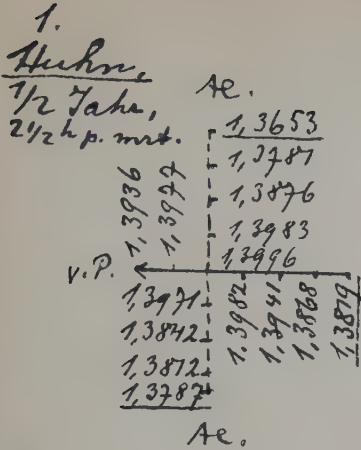 1.
Huhn,
1/2 Jahr,
2 1/2 h p. mrt.
Ae.
1,3653
1,3781
1,3876
1,3983
1,3996
1,3936
1,3977
v. P.
1,3971
1,3842
1,3812
1,3787
1,3982
1,3941
1,3868
1,3819
Ae.